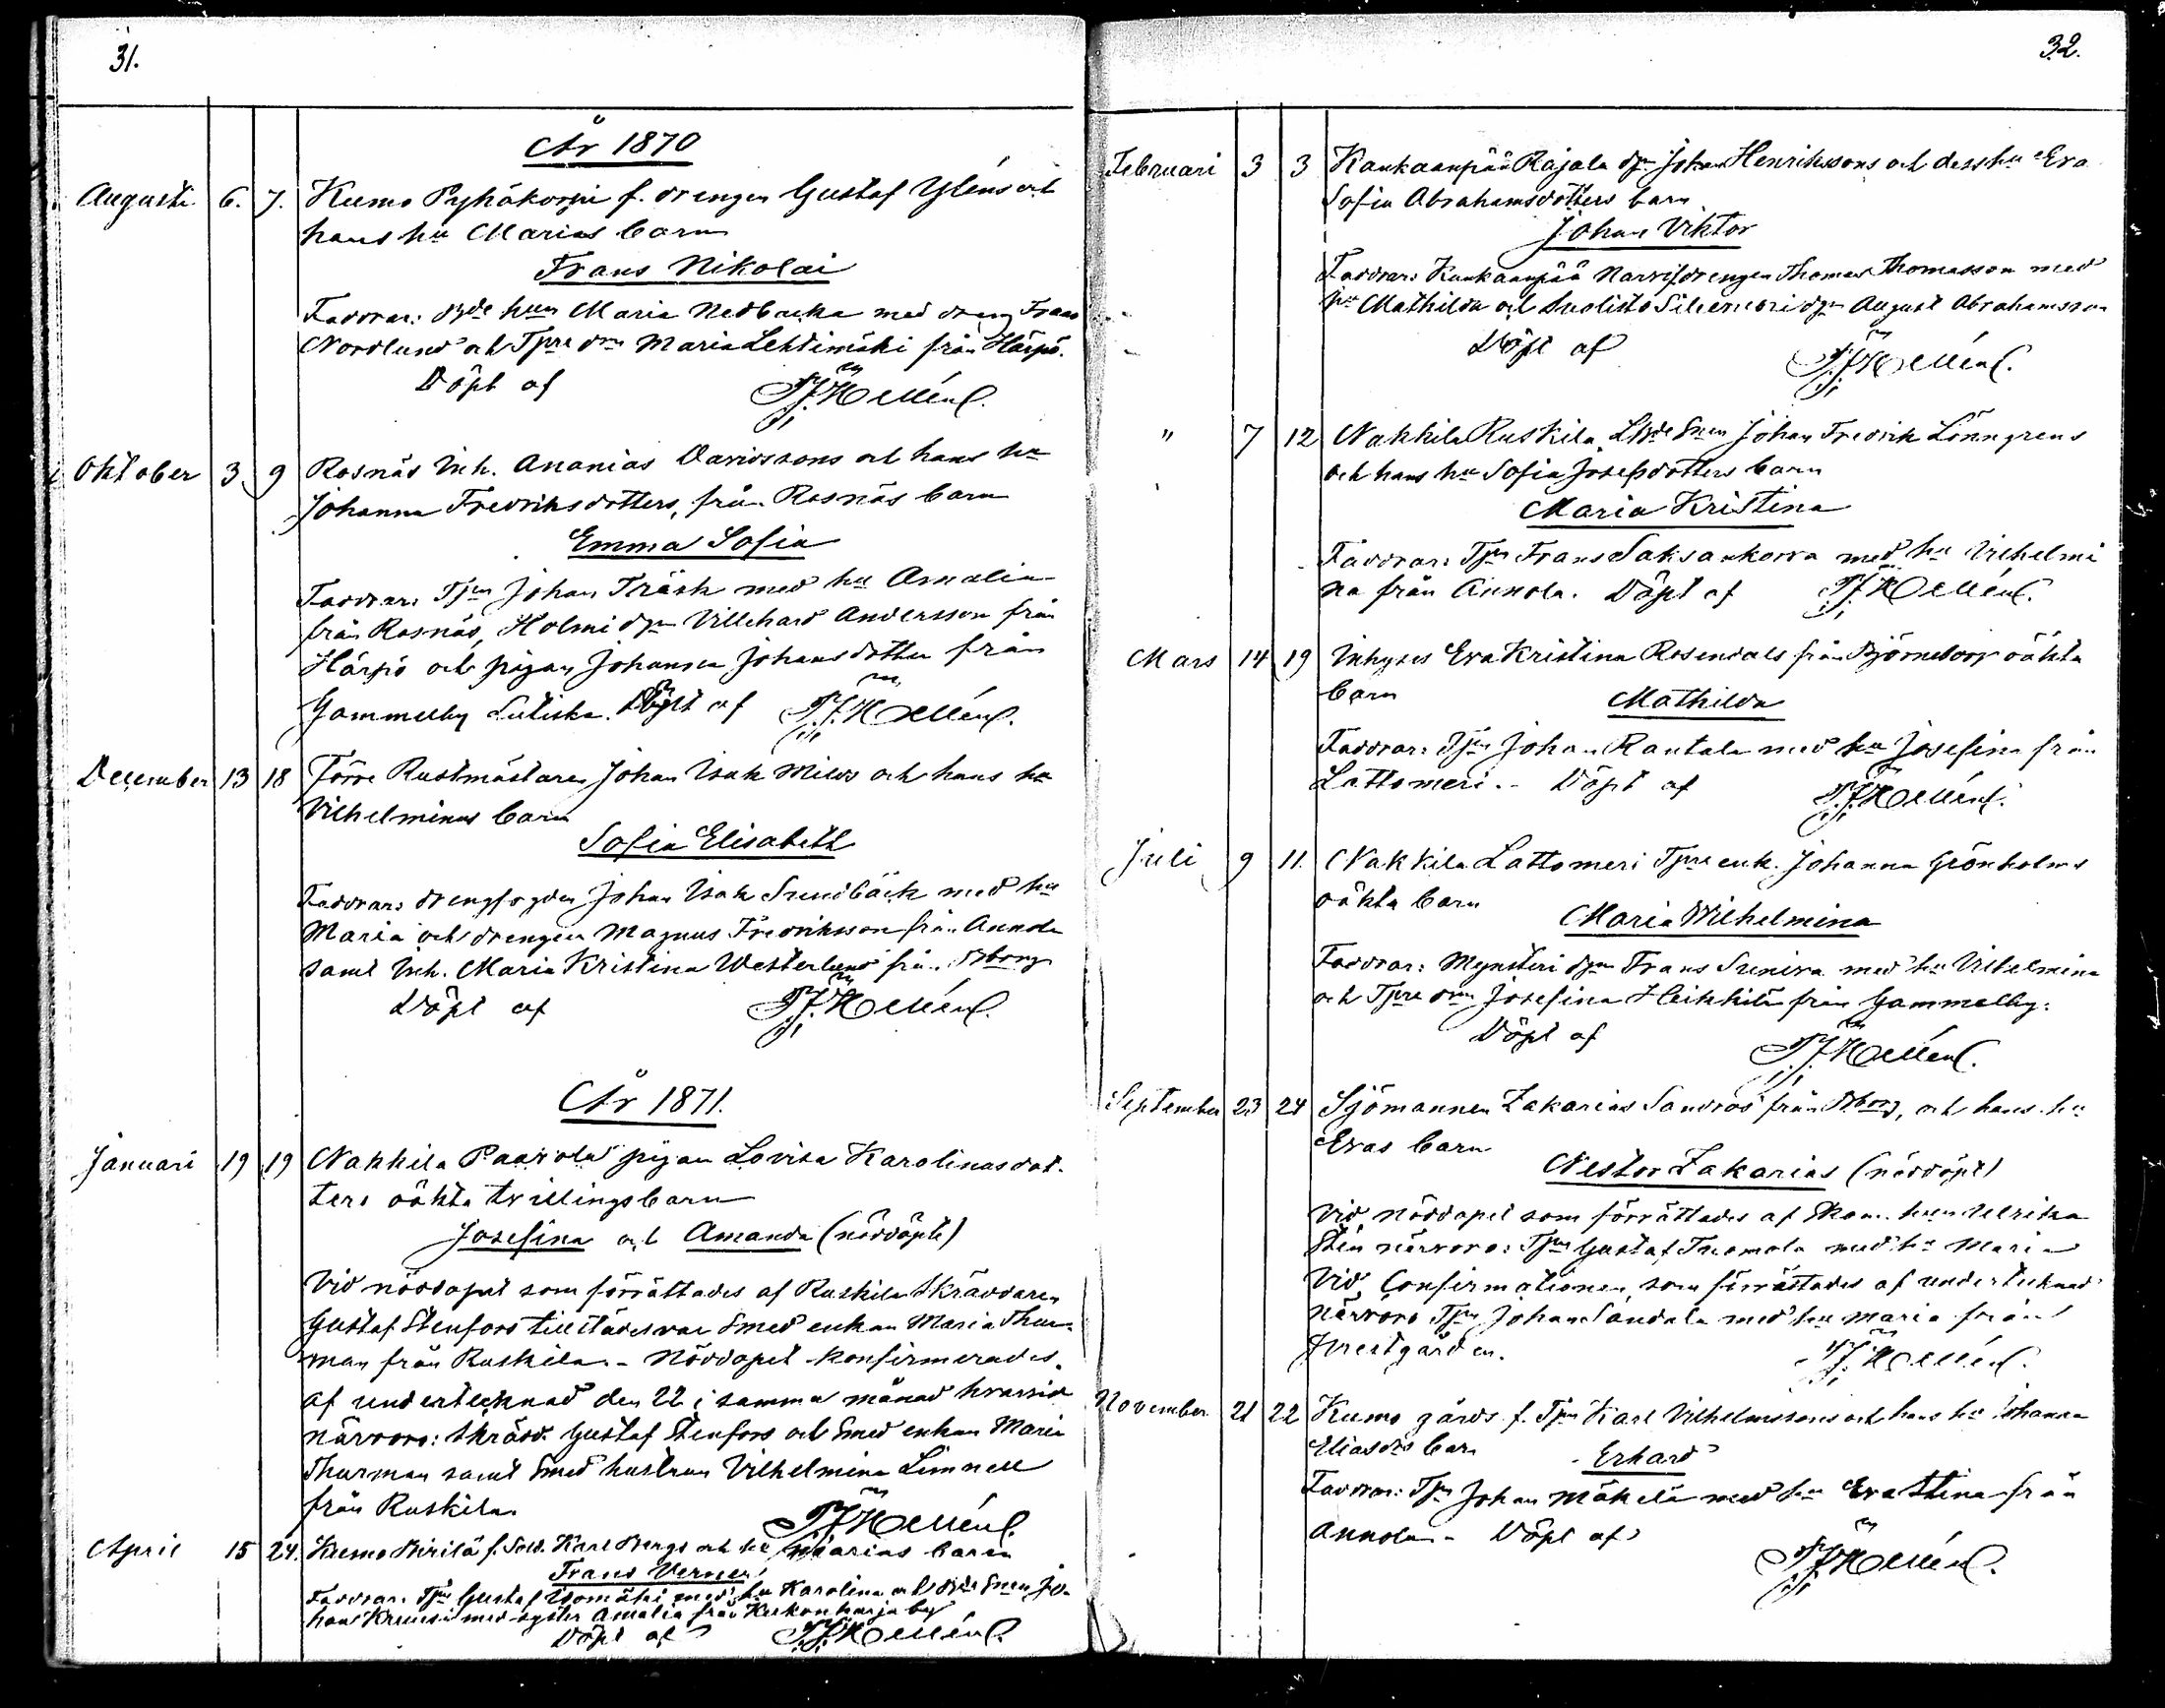 31.
År 1870
Augusti 6. 7. Kumo Pyhäkorpi f. drengen Gustaf Yléns och
hans hu Marias barn
Frans Nikolai
Faddrar: dgde hun Maria Nedbacka med dreng Frans
Nordlund och Tpre drn Maria Lehtimäki från Härpö.
Döpt af
Oktober 3. 9 Rosnäs Inh. Ananias Davidssons och hans hu
Johanna Fredriksdotters, från Rosnäs barn
Emma Sofia
Faddrar: Tjn Johan Träsk med hu Amalia
från Rosnäs, Holmi dgn Villehard Andersson från
Härpö och pigan Johanna Johansdotter från
Gammelby Lutiska. Döpt af
December 13 18 Förre Rustmästaren Johan Isak Milds och hans hu
Vilhelminas barn
Sofia Elisabeth
Faddrar: drengfogden Johan Isak Sundbäck med hu
Maria och drengen Magnus Fredriksson från Annola
samt Inh. Maria Kristina Westerlund från Bborg
Döpt af
År 1871.
Januari 19 19 Nakkila Paavola pigan Lovisa Karolinasdot-
ters oäkta tvillingsbarn
Josefina och Amanda (nöddöpte)
Vid nöddopet som förrättades af Ruskila Skräddaren
Gustaf Stenfors tillstädes var Smed enkan Maria Thur-
man från Ruskila. - Nöddopet konfirmerades
af undertecknad den 22 i samma månad hvarvid
närvoro: Skrädd. Gustaf Stenfors och Smed enkan Maria
Thurman samt Smed hustrun Vilhelmina Limnell
från Ruskila
April 15 24. Kumo Pirilä f. Sold. Karl Bergs och hu Marias barn
Frans Verner
Faddrar: Tjn Gustaf Isomäki med hu Karolina och Jo-
han med syster Amalia från by
Döpt af
32.
Februari 3 3 Kankaanpää Rajala dgn Johan Henrikssons och dess hu Eva
Sofia Abrahamsdotters barn
Johan Viktor
Faddrar: Kankaanpää Narvi drengen Thomas Thomasson med
hu Mathilda och Suolisto dgn August Abrahamsson
Döpt af
" 7 12 Nakkila Ruskila Johan Fredrik Lönngrens
och hans hu Sofia Josefsdotters barn
Maria Kristina
Faddrar: Tjn Frans Saksankorva med hu Vilhelmi
na från Annola. Döpt af
Mars 14 19 Inhyses Eva Kristina Rosendals från Björneborg oäkta
barn
Mathilda
Faddrar: Tjn Johan Rantala med hu Josefina från
Lattomeri. - Döpt af
Juli 9 11. Nakkila Lattomeri Tpre enk. Johanna Grönholms
oäkta barn
Maria Wilhelmina
Faddrar: Mynsteri dgn Frans Suniva med hu Vilhelmina
och Tpre drn Josefina Heikkilä från Gammelby.
Döpt af
September 23 24 Sjömannen Zakarias Sandros från Bborg, och hans hu
Evas barn
Nestor Zakarias (nöddöpt)
Vid nöddopet som förrättades af Skom. hun Ulrika
Sten närvoro: Tjn Gustaf Tuomola med hu Maria
Vid Confirmationen, som förrättades af undertecknad
närvoro Tjn Johan Sandala med hu Maria från
Prestgården.
November 21 22 Kumo gårds f. Tjn Karl Vilhelmssons och hans hu Johanna
Eliasdrs barn
Erhard
Faddrar: Tjn Johan Mäkelä med hu Eva Stina från
Annola - Döpt af